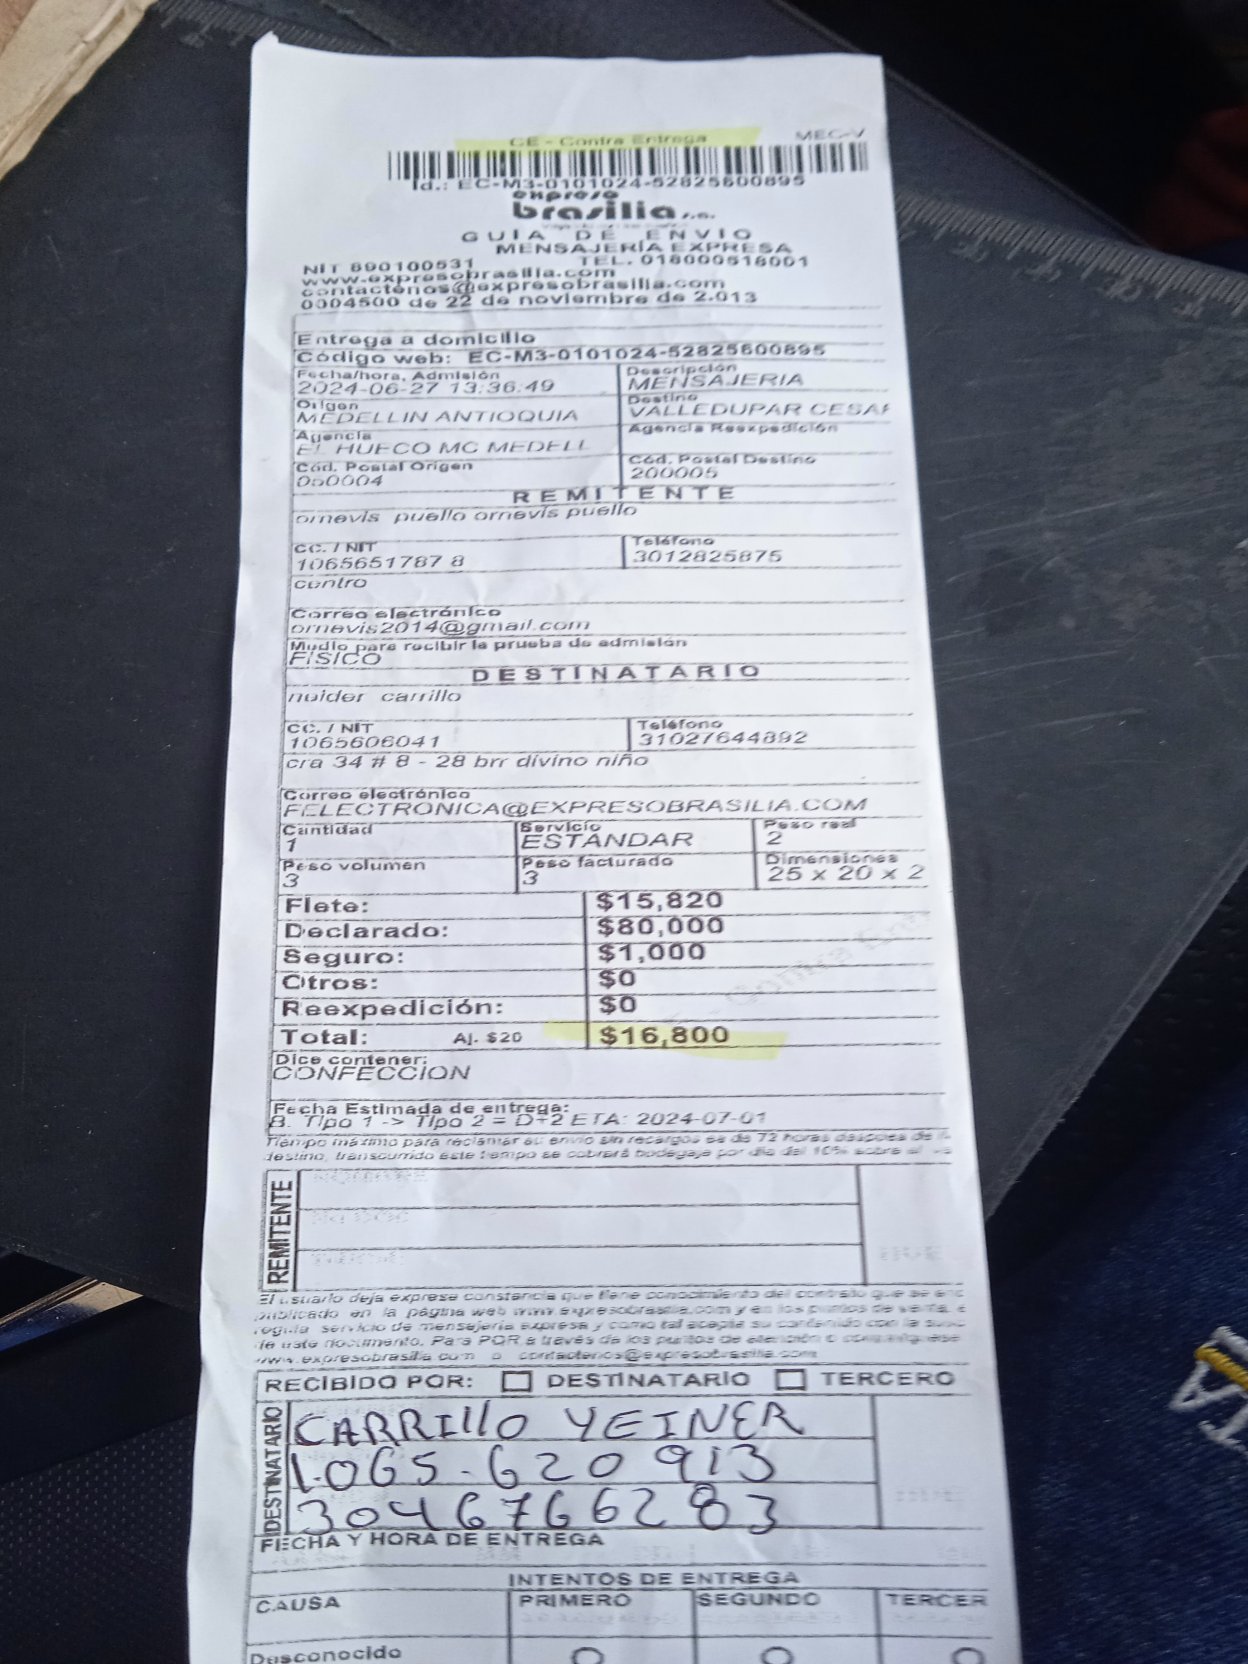 CE - Contra Entrega MEC-V
Id.: EC-M3-0101024-52825600895
expreso
brasilia s.a.
GUIA DE ENVIO
MENSAJERÍA EXPRESA
NIT 890100531 TEL. 018000518001
www.expresobrasilia.com
contactenos@expresobrasilia.com
0004500 de 22 de noviembre de 2.013
Entrega a domicilio
Código web: EC-M3-0101024-52825600895
Fecha/hora, Admisión Descripción
2024-06-27 13:36:49 MENSAJERIA
Origen Destino
MEDELLIN ANTIOQUIA VALLEDUPAR CESAR
Agencia Agencia Reexpedición
EL HUECO MC MEDELL
Cód. Postal Origen Cód. Postal Destino
050004 200005
REMITENTE
ornevis puello ornevis puello
CC. / NIT Teléfono
1065651787 8 3012825875
centro
Correo electrónico
ornevis2014@gmail.com
Medio para recibir la prueba de admisión
FISICO
DESTINATARIO
neider carrillo
CC. / NIT Teléfono
1065606041 31027644892
cra 34 # 8 - 28 brr divino niño
Correo electrónico
FELECTRONICA@EXPRESOBRASILIA.COM
Cantidad Servicio Peso real
1 ESTANDAR 2
Peso volumen Peso facturado Dimensiones
3 3 25 x 20 x 2
Flete: $15,820
Declarado: $80,000
Seguro: $1,000
Otros: $0
Reexpedición: $0
Total: Aj. $20 $16,800
Dice contener:
CONFECCION
Fecha Estimada de entrega:
B. Tipo 1 -> Tipo 2 = D+2 ETA: 2024-07-01
Tiempo máximo para reclamar su envío sin recargos es de 72 horas despues de
destino, transcurrido este tiempo se cobrará bodegaje por día del 10% sobre el
REMITENTE
El usuario deja expresa constancia que tiene conocimiento del contrato que se enc
publicado en la página web www.expresobrasilia.com y en los puntos de venta,
regula servicio de mensajería expresa y como tal acepta su contenido con la
de este documento. Para PQR a través de los puntos de atención o
www.expresobrasilia.com o contactenos@expresobrasilia.com
RECIBIDO POR: DESTINATARIO TERCERO
DESTINATARIO
CARRIllo YEINER
1.065.620 913
3046766283
FECHA Y HORA DE ENTREGA
INTENTOS DE ENTREGA
CAUSA PRIMERO SEGUNDO TERCER
Desconocido